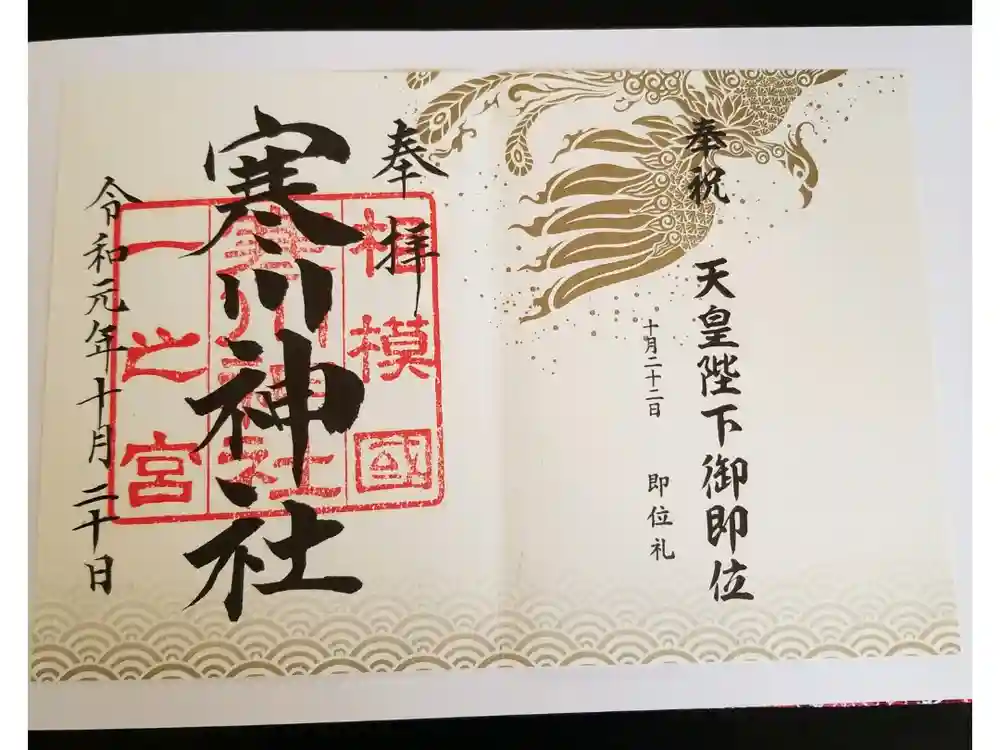 奉祝
天皇陛下御即位
十月二十二日 即位礼
奉拝
相模國
寒川神社
寒川神社
一之宮
令和元年十月二十日